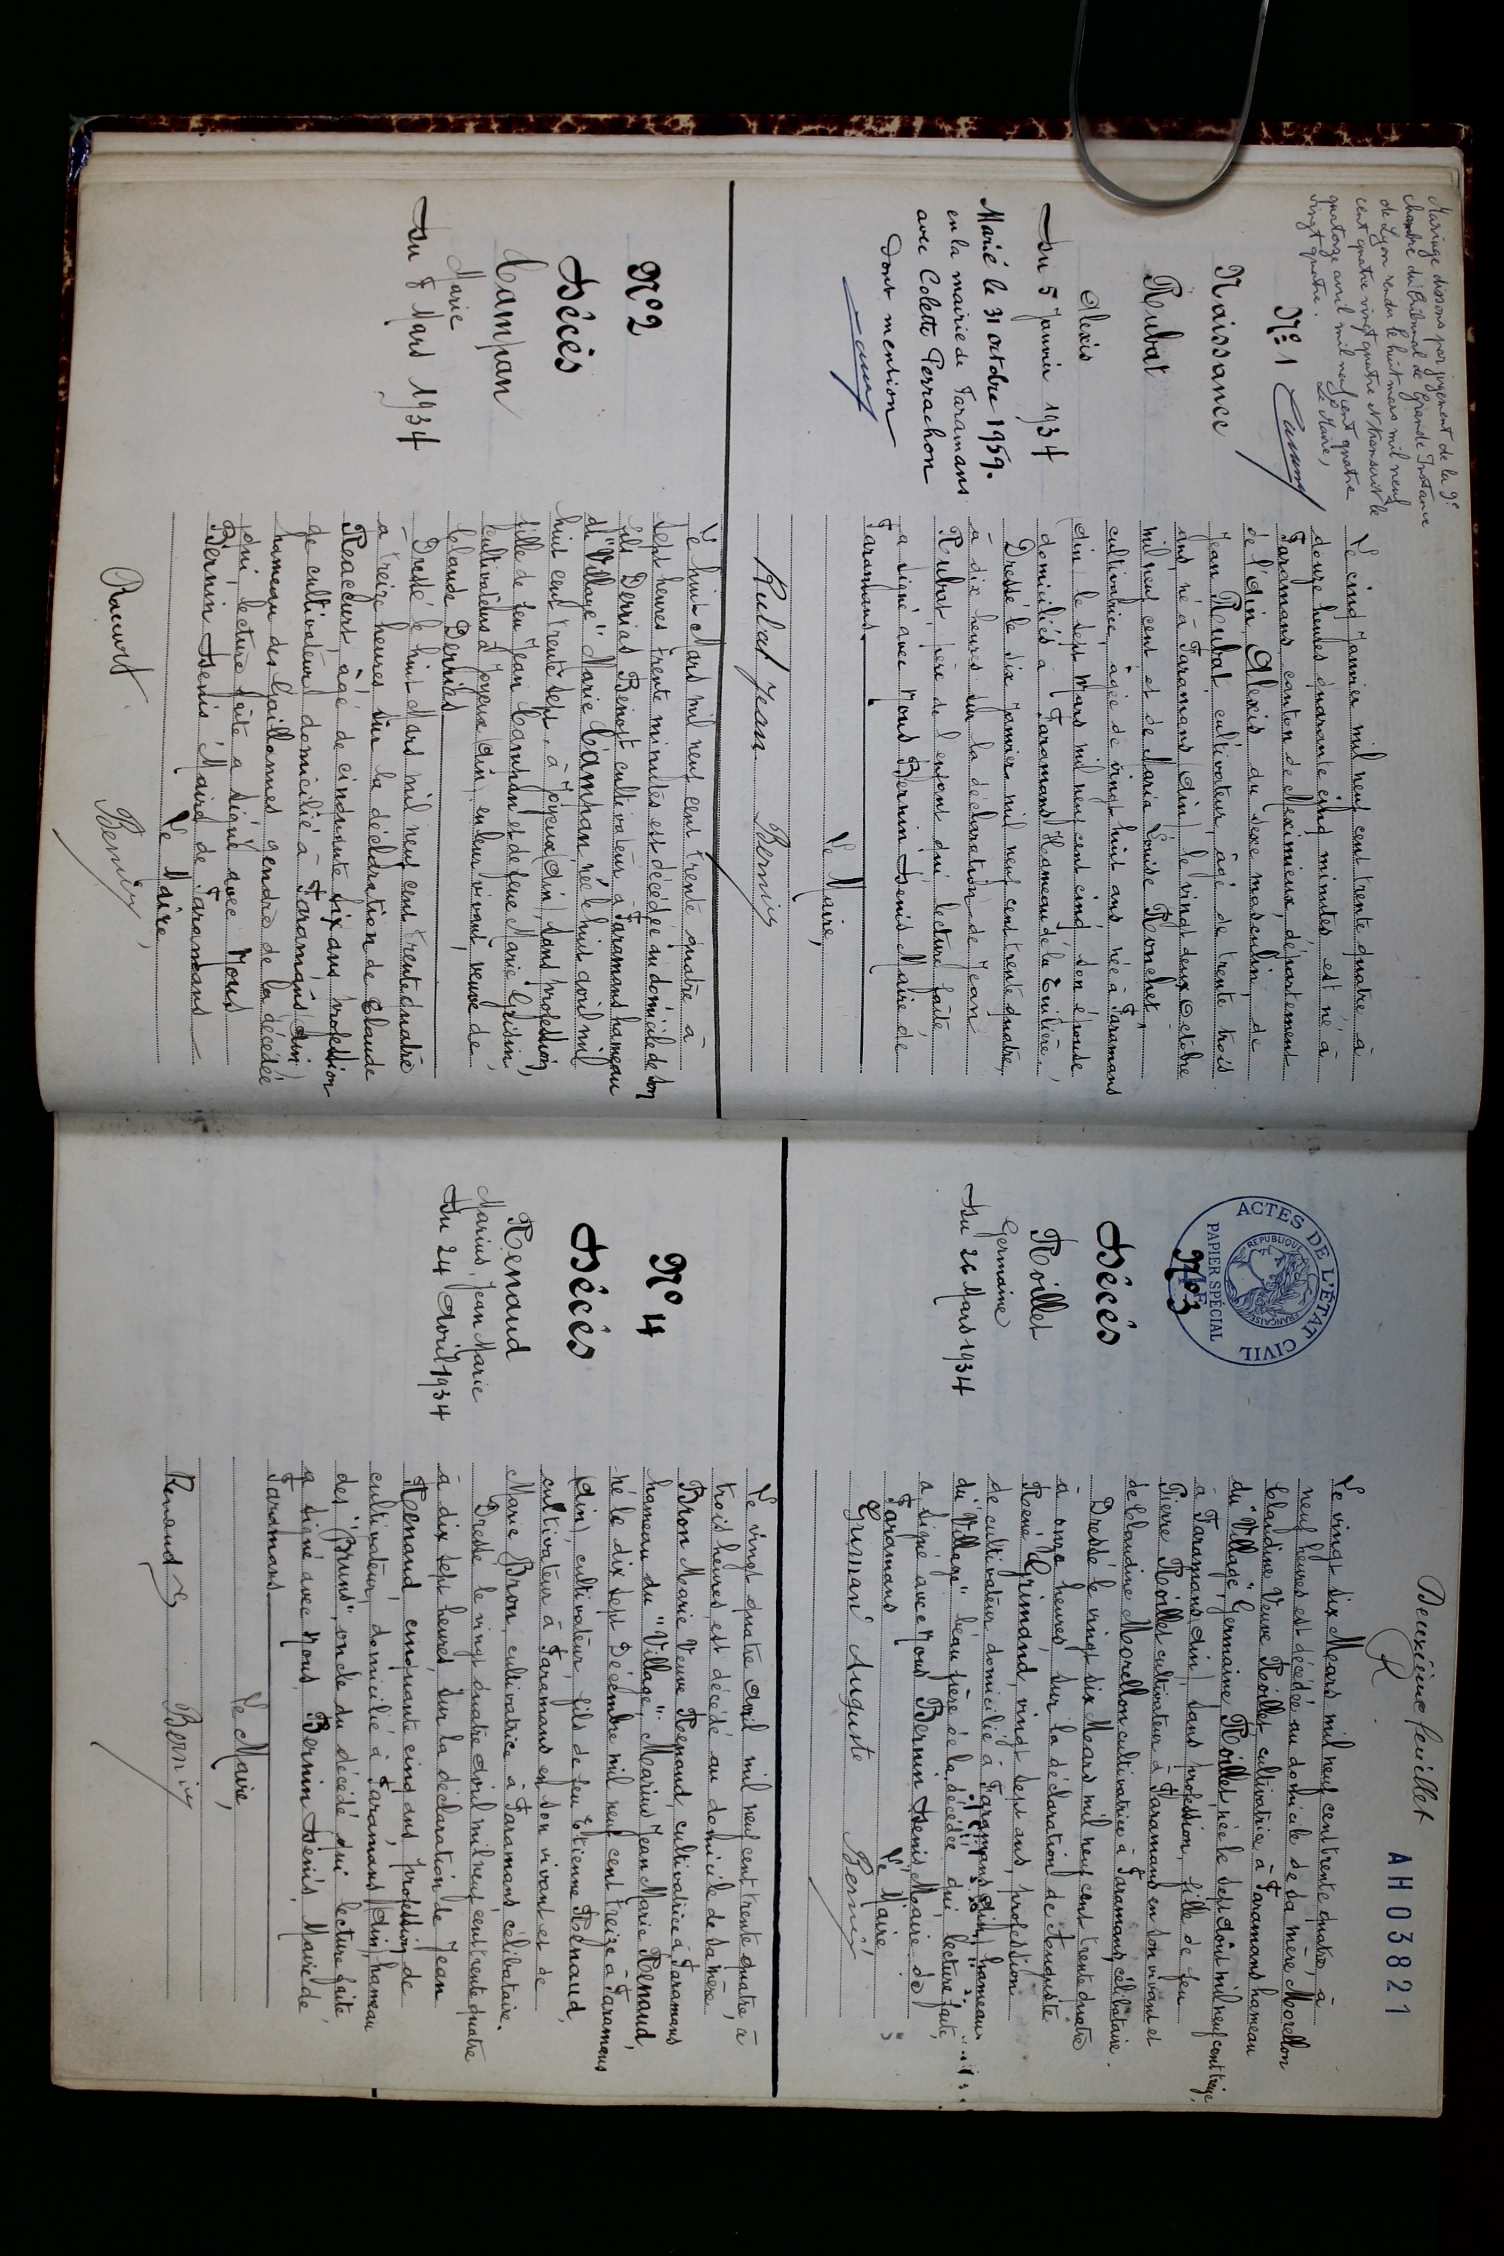 Mariage dissous par jugement de la 9e
chambre du tribunal de Grande Instance
de Lyon rendu le huit mars mil neuf
cent quatre vingt quatre et transcrit le
quatorze avril mil neuf cent quatre
vingt quatre. Le Maire,
N° 1
Naissance
Rubat
Alexis
Du 5 Janvier 1934
Marié le 31 octobre 1959.
en la mairie de Faramans
avec Colette Perrachon
Dont mention
Le cinq Janvier mil neuf cent trente quatre à
douze heures quarante cinq minutes est né à
Faramans canton de Meximieux, département
de l'Ain, Alexis du sexe masculin, de
Jean Rubat cultivateur, âgé de trente trois
ans né à Faramans (Ain) le vingt deux Octobre
mil neuf cent et de Maria Louise Ronchet,
cultivatrice, âgée de vingt huit ans née à Faramans
(Ain) le sept Mars mil neuf cent cinq son épouse
domiciliés à Faramans Hameau de la Tuilière,
Dressé le six Janvier mil neuf cent trente quatre,
à dix heures sur la déclaration de Jean
Rubat, père de l'enfant qui, lecture faite,
a signé avec Nous Bernin Denis Maire de
Faramans.
Le Maire,
Rubat Jean Bernin
N° 2
Décès
Campan
Marie
Du 8 Mars 1934
Le huit Mars mil neuf cent trente quatre à
sept heures trente minutes est décédée au domicile de son
fils Derrias Benoit cultivateur à Faramans hameau
du "Village" Marie Campan, née le huit avril mil
huit cent trente sept, à Joyeux (Ain), sans profession,
fille de feu Jean Campan et de feue Marie Grisin,
cultivateurs à Joyeux (Ain) en leur vivant, veuve de
Claude Derrias
Dressé le huit Mars mil neuf cent trente quatre
à treize heures sur la déclaration de Claude
Reacourt, âgé de cinquante six ans profession
de cultivateur domicilié à Faramans (Ain)
hameau des Gaillannes gendre de la décédée
qui, lecture faite a signé avec Nous
Bernin Denis Maire de Faramans
Le Maire,
Bernin
Deuxième feuillet
AH03821
ACTES DE L'ÉTAT CIVIL
REPUBLIQUE FRANÇAISE
PAPIER SPÉCIAL
N° 3
Décès
Roillet
Germaine
Du 26 Mars 1934
Le vingt six Mars mil neuf cent trente quatre, à
neuf heures est décédée au domicile de sa mère, Morellon
Claudine Veuve Roillet cultivatrice à Faramans hameau
du "Village", Germaine Roillet, née le sept août mil neuf cent treize,
à Faramans (Ain) sans profession, fille de feu
Pierre Roillet cultivateur à Faramans en son vivant et
de Claudine Morellon cultivatrice à Faramans, célibataire.
Dressé le vingt six Mars mil neuf cent trente quatre
à onze heures, sur la déclaration de Auguste
René Grimand, vingt sept ans, profession
de cultivateur domicilié à Faramans (Ain) hameau
du "Village" beau frère de la décédée qui lecture faite,
a signé avec Nous Bernin Denis Maire de
Faramans
Le Maire,
Auguste Bernin
N° 4
Décès
Renaud
Marius, Jean Marie
Du 24 Avril 1934
Le vingt quatre Avril mil neuf cent trente quatre, à
trois heures, est décédé au domicile de sa mère,
Bron Marie Veuve Renaud, cultivatrice à Faramans
hameau du "Village", Marius Jean Marie Renaud,
né le dix sept Décembre mil neuf cent treize à Faramans
(Ain), cultivateur, fils de feu Etienne Renaud,
cultivateur à Faramans en son vivant et de
Marie Bron, cultivatrice à Faramans célibataire.
Dressé le vingt quatre avril mil neuf cent trente quatre
à dix sept heures, sur la déclaration de Jean
Renaud, cinquante cinq ans, profession de
cultivateur, domicilié à Faramans (Ain) hameau
des "Bruns", oncle du décédé qui lecture faite,
a signé avec Nous Bernin Denis Maire de
Faramans
Le Maire,
Renaud Bernin